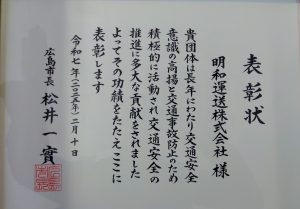 表彰状
明和運送株式会社 様
貴団体は長年にわたり交通安全
意識の高揚と交通事故防止のため
積極的に活動され交通安全の
推進に多大な貢献をされました
よってその功績をたたえここに
表彰します
令和七年(二〇二五年)二月十日
広島市長 松井一實